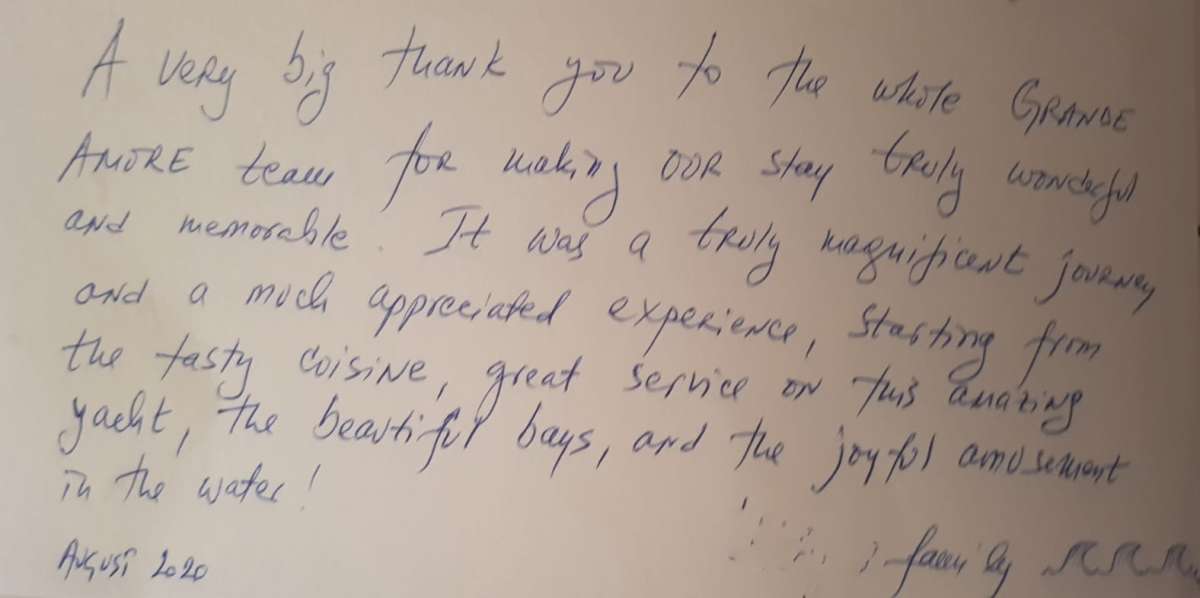 A very big thank you to the whole GRANDE
AMORE team for making our stay truly wonderful
and memorable. It was a truly magnificent journey
and a much appreciated experience, starting from
the tasty cuisine, great service on this amazing
yacht, the beautiful bays, and the joyful amusement
in the water!
August 2020
family